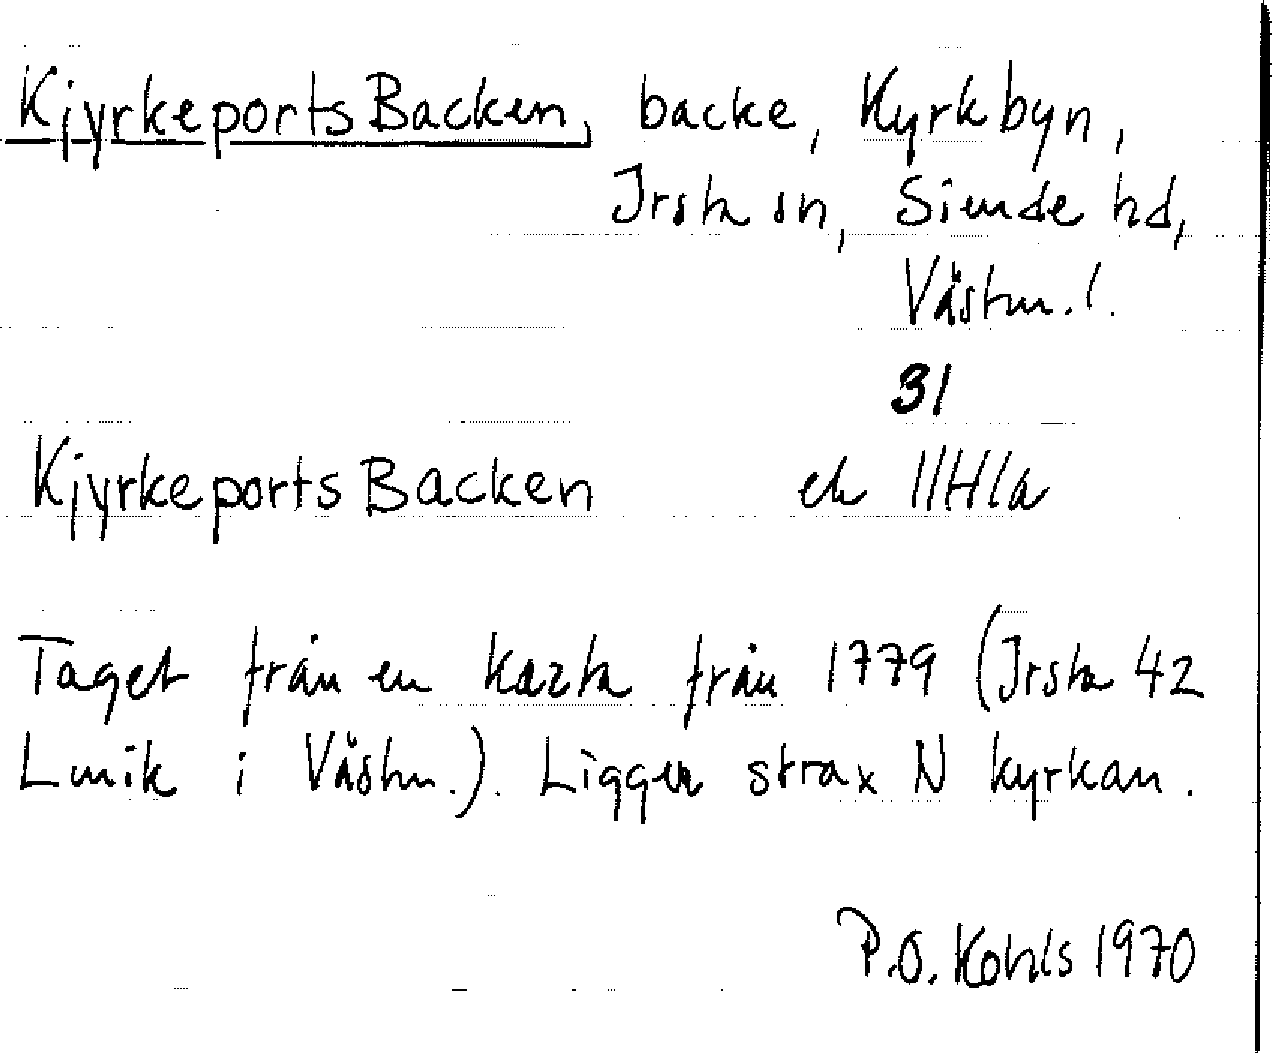 KjyrkeportsBacken, backe, Kyrkbyn,
Irsta sn, Siende hd,
Västm. l.
31
KjyrkeportsBacken ek 11H1a
Taget från en karta från 1779 (Irsta 42
Lmik i Västm.). Ligger strax N kyrkan.
P.O. Kohls 1970